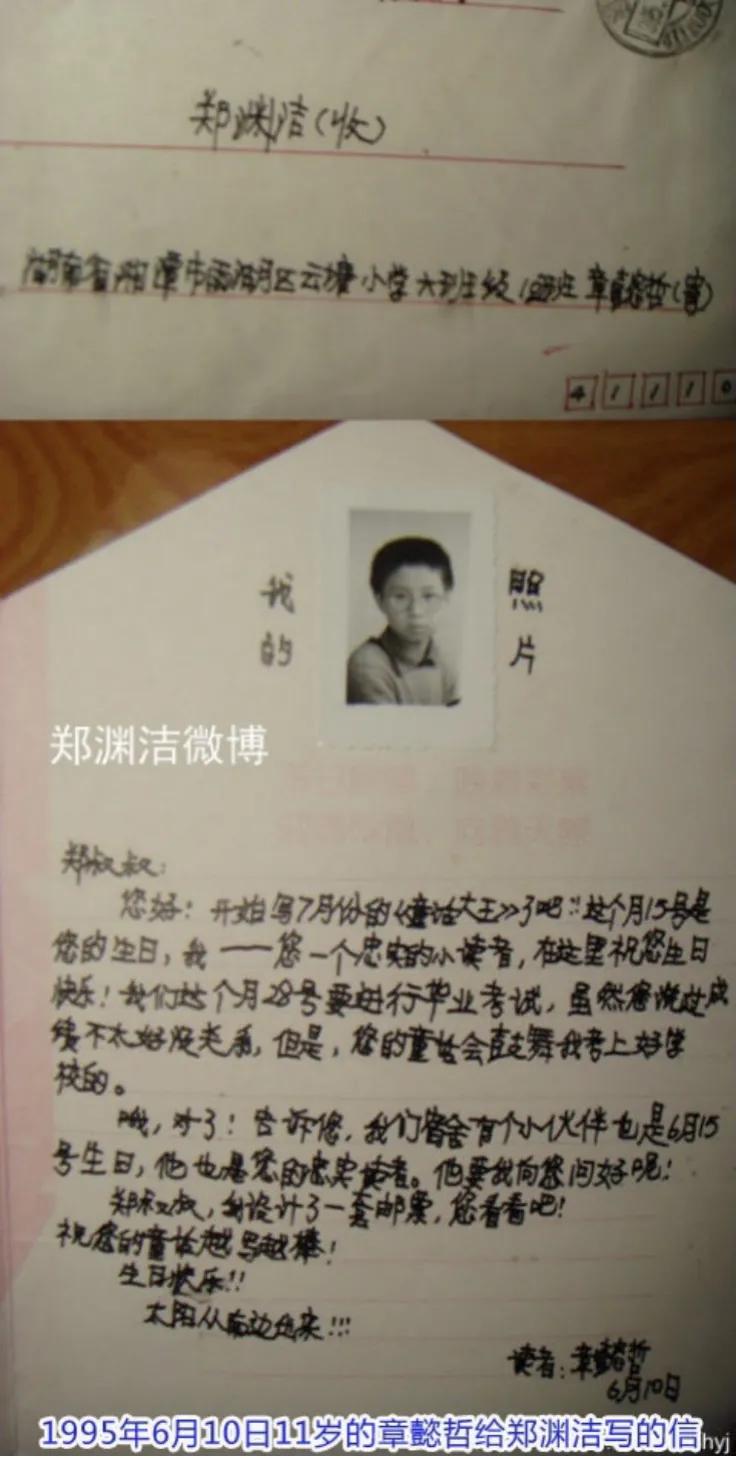 郑渊洁(收)
湖南省湘潭市雨湖区云塘小学六班年级 班 章懿哲(寄)
4 1 1 1 0
我的
照片
郑渊洁微博
郑叔叔:
您好!开始写7月份的《童话大王》了吧!!这个月15号是
您的生日,我——您一个忠实的小读者,在这里祝您生日
快乐!我们这个月28号要进行毕业考试,虽然您说过成
绩不太好没关系,但是,您的童话会鼓舞我考上好学
校的。
哦,对了!告诉您,我们宿舍有个小伙伴也是6月15
号生日,他也是您的忠实读者。他要我向您问好呢!
郑叔叔,我设计了一套邮票,您看看吧!
祝您的童话越写越棒!
生日快乐!!
太阳从 边出来!!!
读者:章懿哲
6月10日
1995年6月10日11岁的章懿哲给郑渊洁写的信
hyj